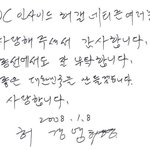 DC 인사이드 허갤 네티즌 여러분
사랑해 주셔서 감사합니다.
총선에서도 잘 부탁합니다.
좋은 대한민국을 만들겠습니다
사랑합니다.
2008. 1. 8
허경영